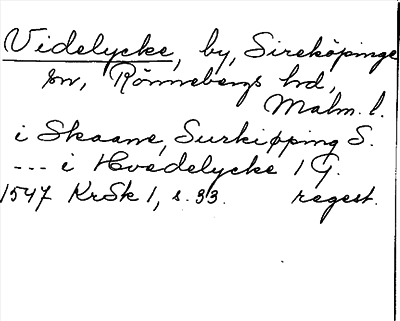 Videlycke, by, Sireköpinge
sn, Rönnebergs hd,
Malm. l.
i Skaane, Surkiøpping S.
--- i Hvedelycke 1 G.
1547 KrSk 1, s. 33. regest.